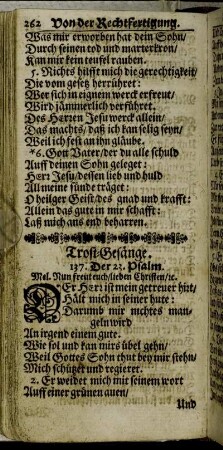 262 Von der Rechtfertigung.
Was mir erworben hat dein Sohn/
Durch seinen tod und marterkron/
Kan mir kein teufel rauben.
5. Nichts hilfft mich die gerechtigkeit/
Die vom gesetz herrühret:
Wer sich in eignem werck erfreut/
Wird jämmerlich verführet.
Des HErren JEsu werck allein/
Das machts/ daß ich kan selig seyn/
Weil ich fest an ihn gläube.
*6. Gott Vater/ der du alle schuld
Auff deinen Sohn geleget:
HErr JEsu/ dessen lieb und huld
All meine sünde träget:
O heilger Geist/ des gnad und krafft:
Allein das gute in mir schafft:
Laß mich ans end beharren.
Trost-Gesänge.
137. Der 23. Psalm.
Mel. Nun freut euch/ lieben Christen/ ꝛc.
DEr HErr ist mein getreuer hirt/
Hält mich in seiner hute:
Darumb mir nichtes man-
geln wird
An irgend einem gute.
Wie sol und kan mirs übel gehn/
Weil Gottes Sohn thut bey mir stehn/
Mich schützet und regieret.
2. Er weidet mich mit seinem wort
Auff einer grünen auen/
Und